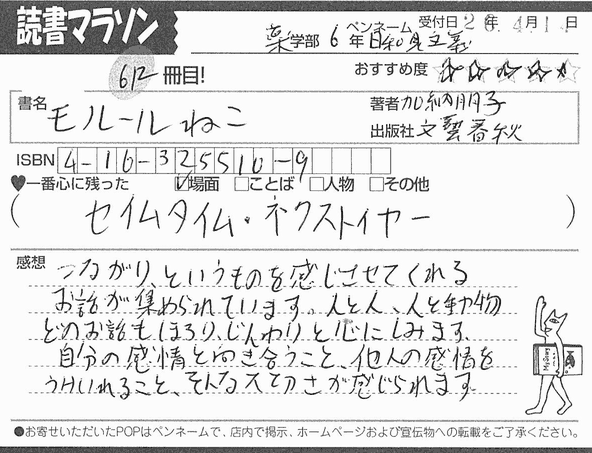 読書マラソン
薬学部 6年 ペンネーム 日和見主義 受付日 26.4.1
612冊目! おすすめ度 ☆☆☆☆☆
書名 モノレールねこ 著者 加納朋子
出版社 文藝春秋
ISBN 4-16-325510-9
♥一番心に残った ☑場面 □ことば □人物 □その他
(セイムタイム・ネクストイヤー)
感想 つながり、というものを感じさせてくれる
お話が集められています。人と人、人と動物
どのお話もほろり、じんわりと心にしみます。
自分の感情と向き合うこと、他人の感情を
うけいれること、そんな大切さが感じられます
●お寄せいただいたPOPはペンネームで、店内で掲示、ホームページおよび宣伝物への転載をご了承ください。